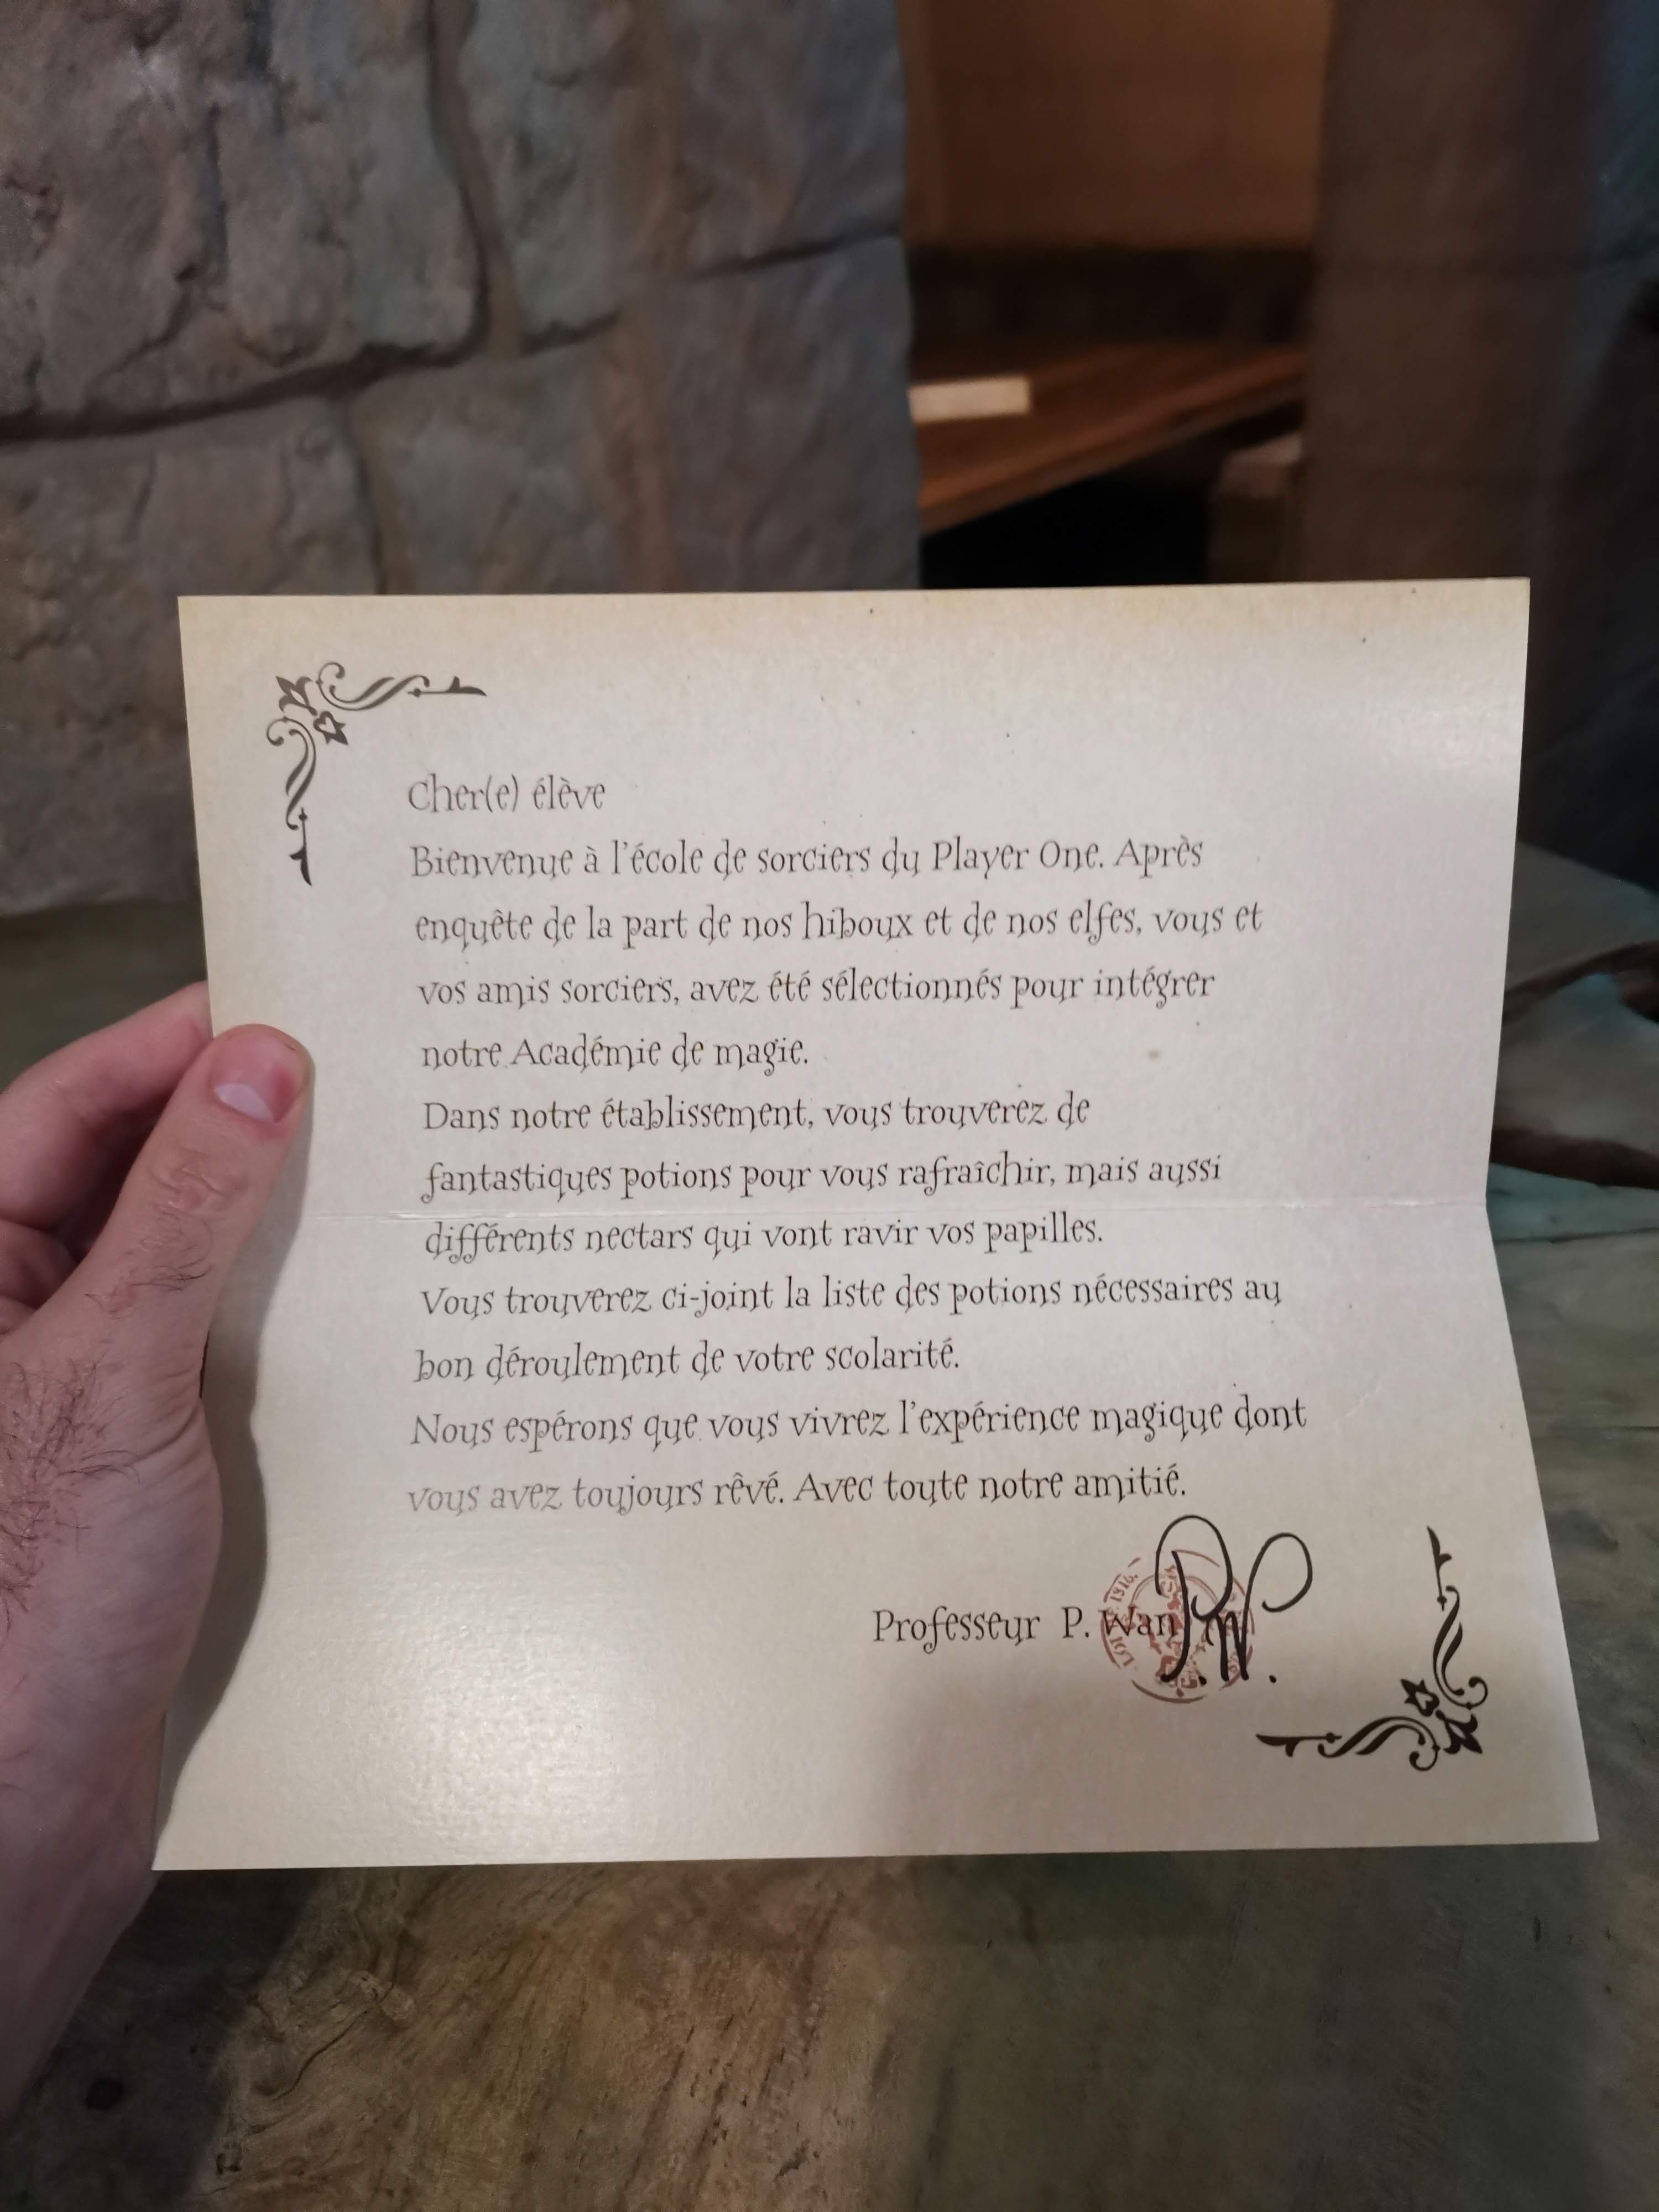 Cher(e) élève
Bienvenue à l'école de sorciers du Player One. Après
enquête de la part de nos hiboux et de nos elfes, vous et
vos amis sorciers, avez été sélectionnés pour intégrer
notre Académie de magie.
Dans notre établissement, vous trouverez de
fantastiques potions pour vous rafraîchir, mais aussi
différents nectars qui vont ravir vos papilles.
Vous trouverez ci-joint la liste des potions nécessaires au
bon déroulement de votre scolarité.
Nous espérons que vous vivrez l'expérience magique dont
vous avez toujours rêvé. Avec toute notre amitié.
Professeur P.
P.W.